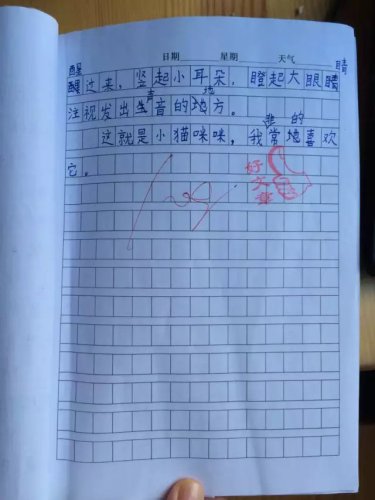 日期 星期 天气
醒 睛
醒过来，竖起小耳朵，瞪起大眼睛
声 地
注视发出生音的地方。
非 的
这就是小猫咪咪，我常地喜欢
它。
好文章